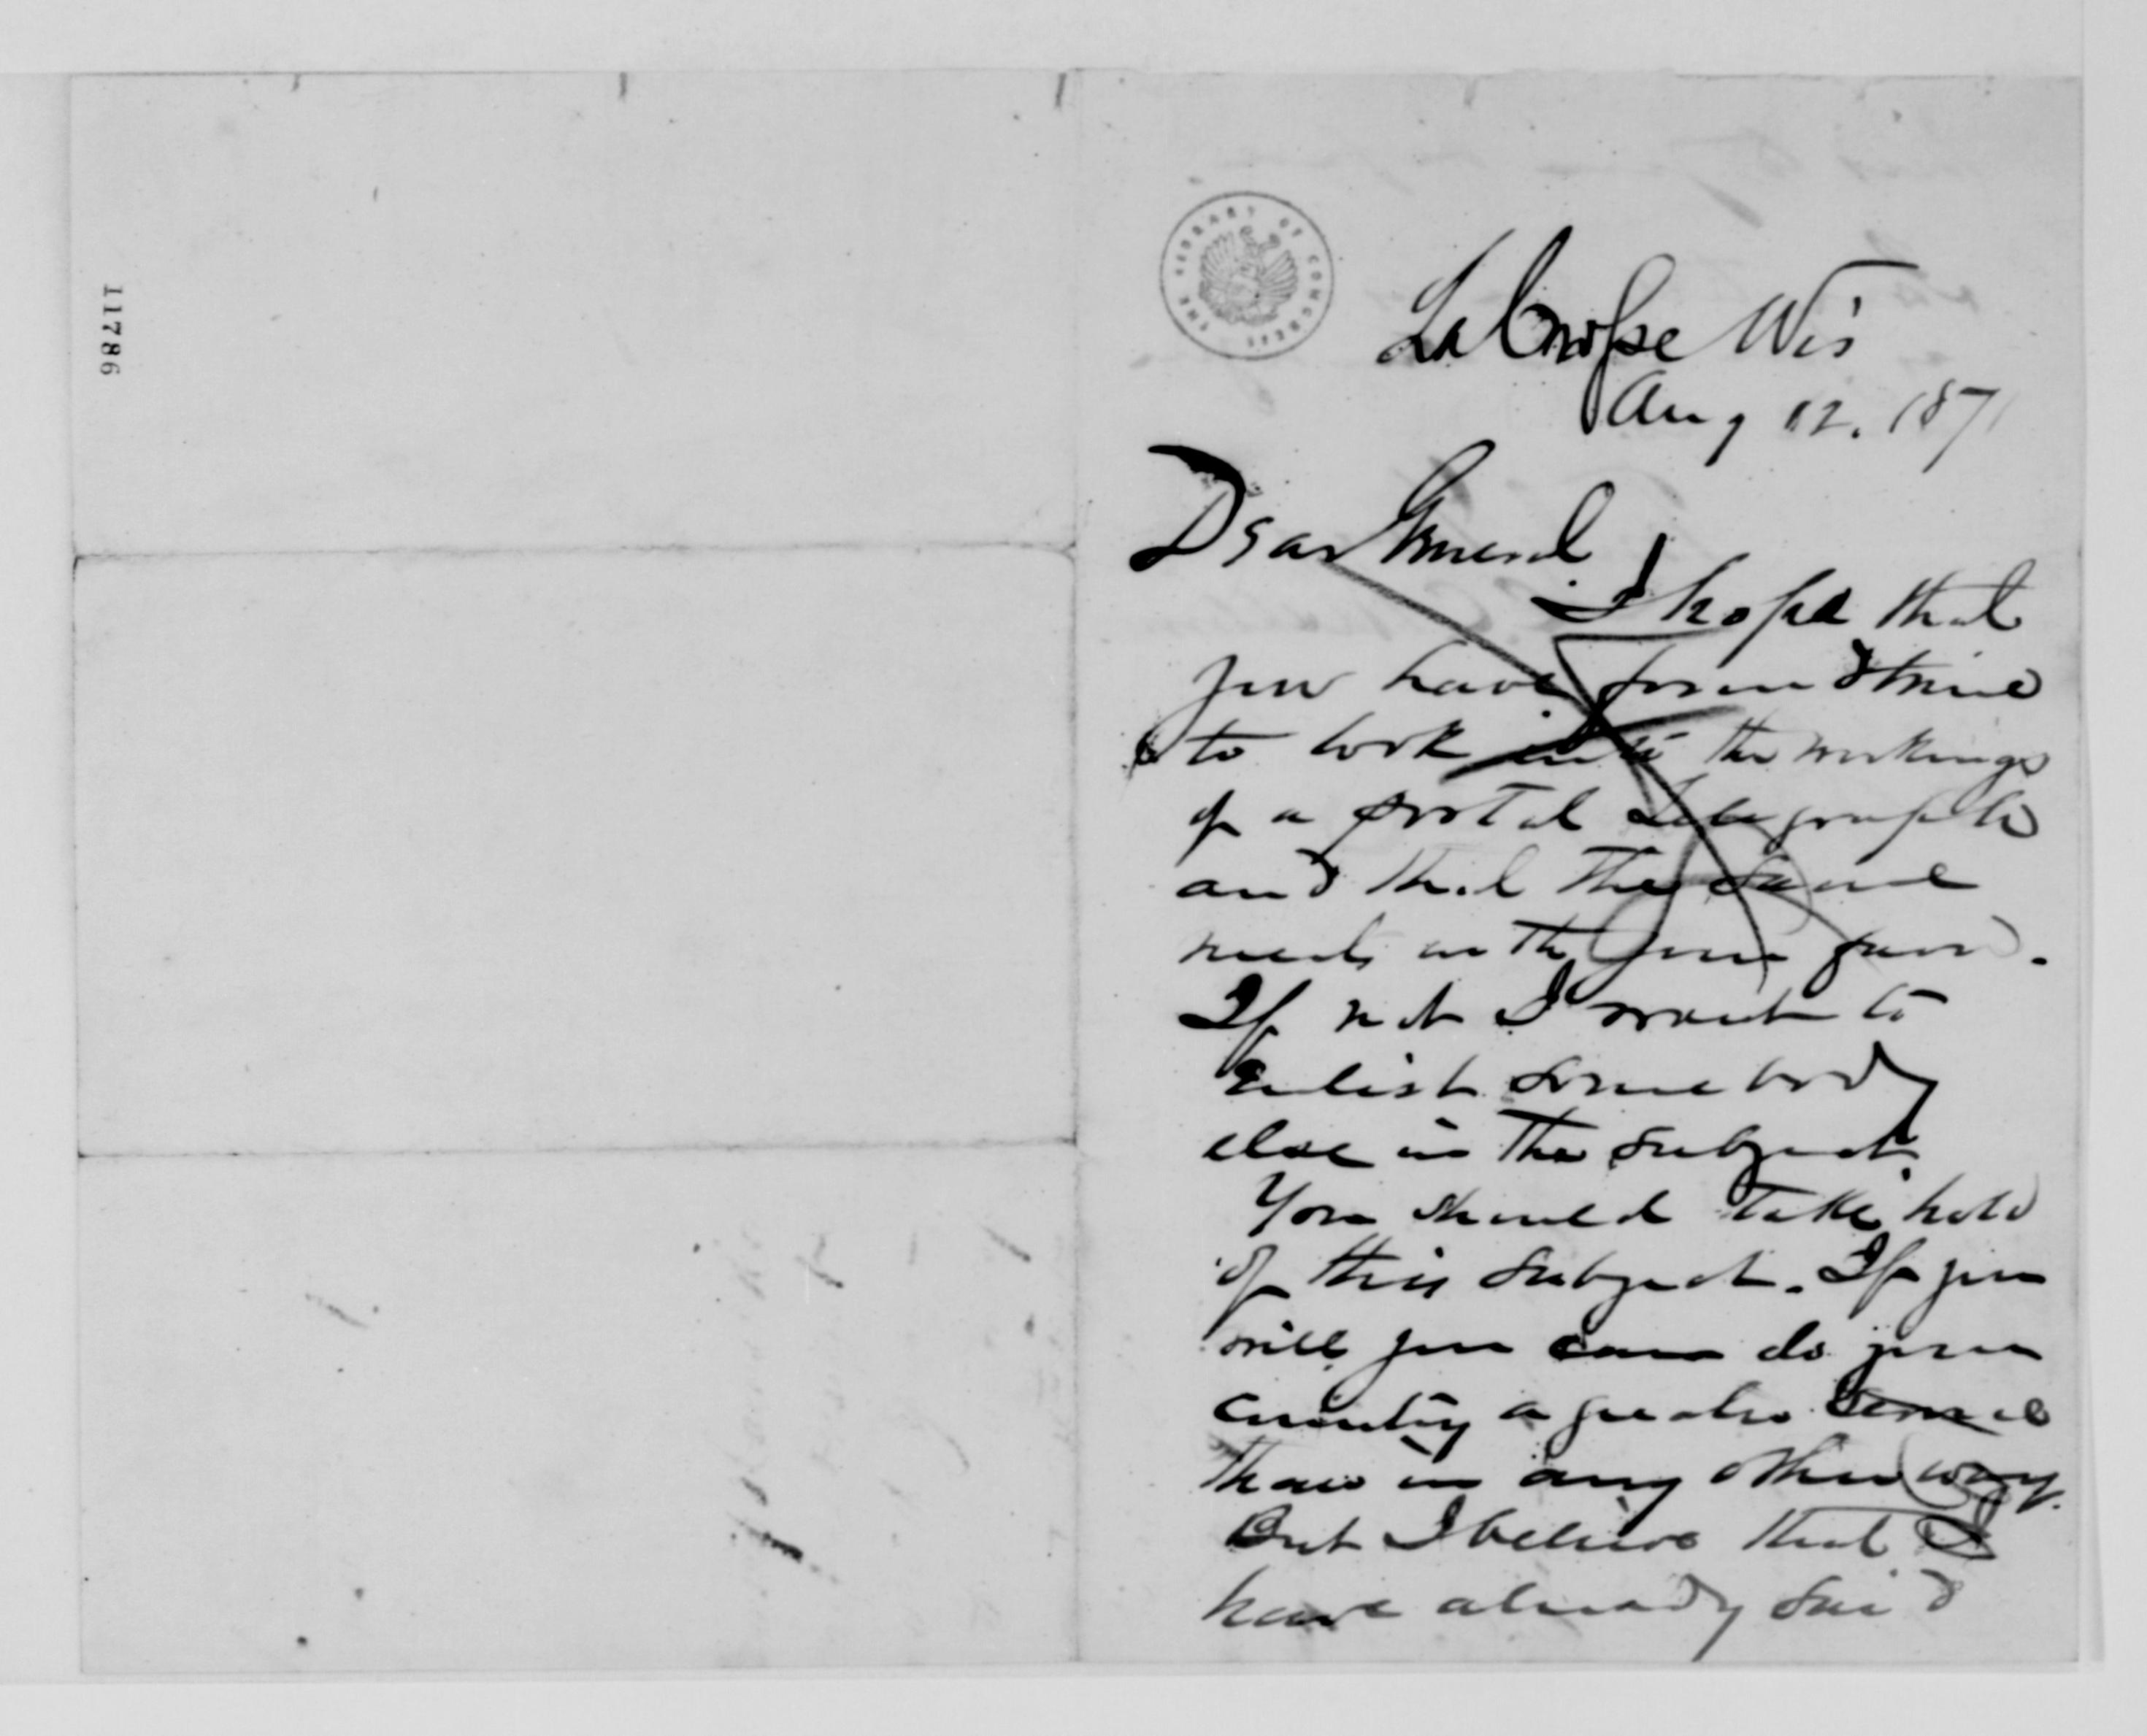 11786
THE LIBRARY OF CONGRESS
La Crosse Wis
Aug 12. 1871
Dear General
I hope that
you have found time
to look into the workings
of a postal telegraph
and that the same
meets with your favor.
If not I want to
enlist somebody
else in the subject.
You should take hold
of this subject. If you
will you can do your
country a greater service
than in any other way.
But I believe that I
have already said